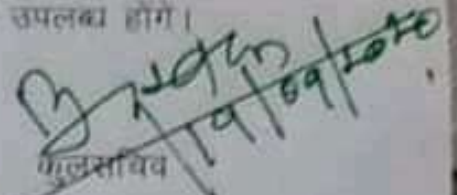 उपलब्ध होगे।
19/09/2020
कुलसचिव